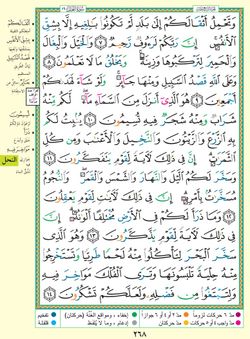 وَتَحْمِلُ أَثْقَالَكُمْ إِلَىٰ بَلَدٍ لَّمْ تَكُونُوا۟ بَـٰلِغِيهِ إِلَّا بِشِقِّ
ٱلْأَنفُسِ ۚ إِنَّ رَبَّكُمْ لَرَءُوفٌ رَّحِيمٌ ٧ وَٱلْخَيْلَ وَٱلْبِغَالَ
وَٱلْحَمِيرَ لِتَرْكَبُوهَا وَزِينَةً ۚ وَيَخْلُقُ مَا لَا تَعْلَمُونَ ٨
وَعَلَى ٱللَّهِ قَصْدُ ٱلسَّبِيلِ وَمِنْهَا جَآئِرٌ ۚ وَلَوْ شَآءَ لَهَدَىٰكُمْ
أَجْمَعِينَ ٩ هُوَ ٱلَّذِىٓ أَنزَلَ مِنَ ٱلسَّمَآءِ مَآءً ۖ لَّكُم مِّنْهُ
شَرَابٌ وَمِنْهُ شَجَرٌ فِيهِ تُسِيمُونَ ١٠ يُنۢبِتُ لَكُم
بِهِ ٱلزَّرْعَ وَٱلزَّيْتُونَ وَٱلنَّخِيلَ وَٱلْأَعْنَـٰبَ وَمِن كُلِّ
ٱلثَّمَرَٰتِ ۗ إِنَّ فِى ذَٰلِكَ لَـَٔايَةً لِّقَوْمٍ يَتَفَكَّرُونَ ١١
وَسَخَّرَ لَكُمُ ٱلَّيْلَ وَٱلنَّهَارَ وَٱلشَّمْسَ وَٱلْقَمَرَ ۖ وَٱلنُّجُومُ
مُسَخَّرَٰتٌۢ بِأَمْرِهِۦٓ ۗ إِنَّ فِى ذَٰلِكَ لَـَٔايَـٰتٍ لِّقَوْمٍ يَعْقِلُونَ
١٢ وَمَا ذَرَأَ لَكُمْ فِى ٱلْأَرْضِ مُخْتَلِفًا أَلْوَٰنُهُۥٓ ۗ إِنَّ
فِى ذَٰلِكَ لَـَٔايَةً لِّقَوْمٍ يَذَّكَّرُونَ ١٣ وَهُوَ ٱلَّذِى
سَخَّرَ ٱلْبَحْرَ لِتَأْكُلُوا۟ مِنْهُ لَحْمًا طَرِيًّا وَتَسْتَخْرِجُوا۟
مِنْهُ حِلْيَةً تَلْبَسُونَهَا وَتَرَى ٱلْفُلْكَ مَوَاخِرَ فِيهِ
وَلِتَبْتَغُوا۟ مِن فَضْلِهِۦ وَلَعَلَّكُمْ تَشْكُرُونَ ١٤
النحل
مدّ ٦ حركات لزوماً
مدّ ٢ أو ٤ أو ٦ جوازاً
إخفاء، ومواقع الغُنَّة (حركتان)
تفخيم
مدّ واجب ٤ أو ٥ حركات
مدّ حركتان
إدغام، وما لا يُلفظ
قلقلة
٢٦٨